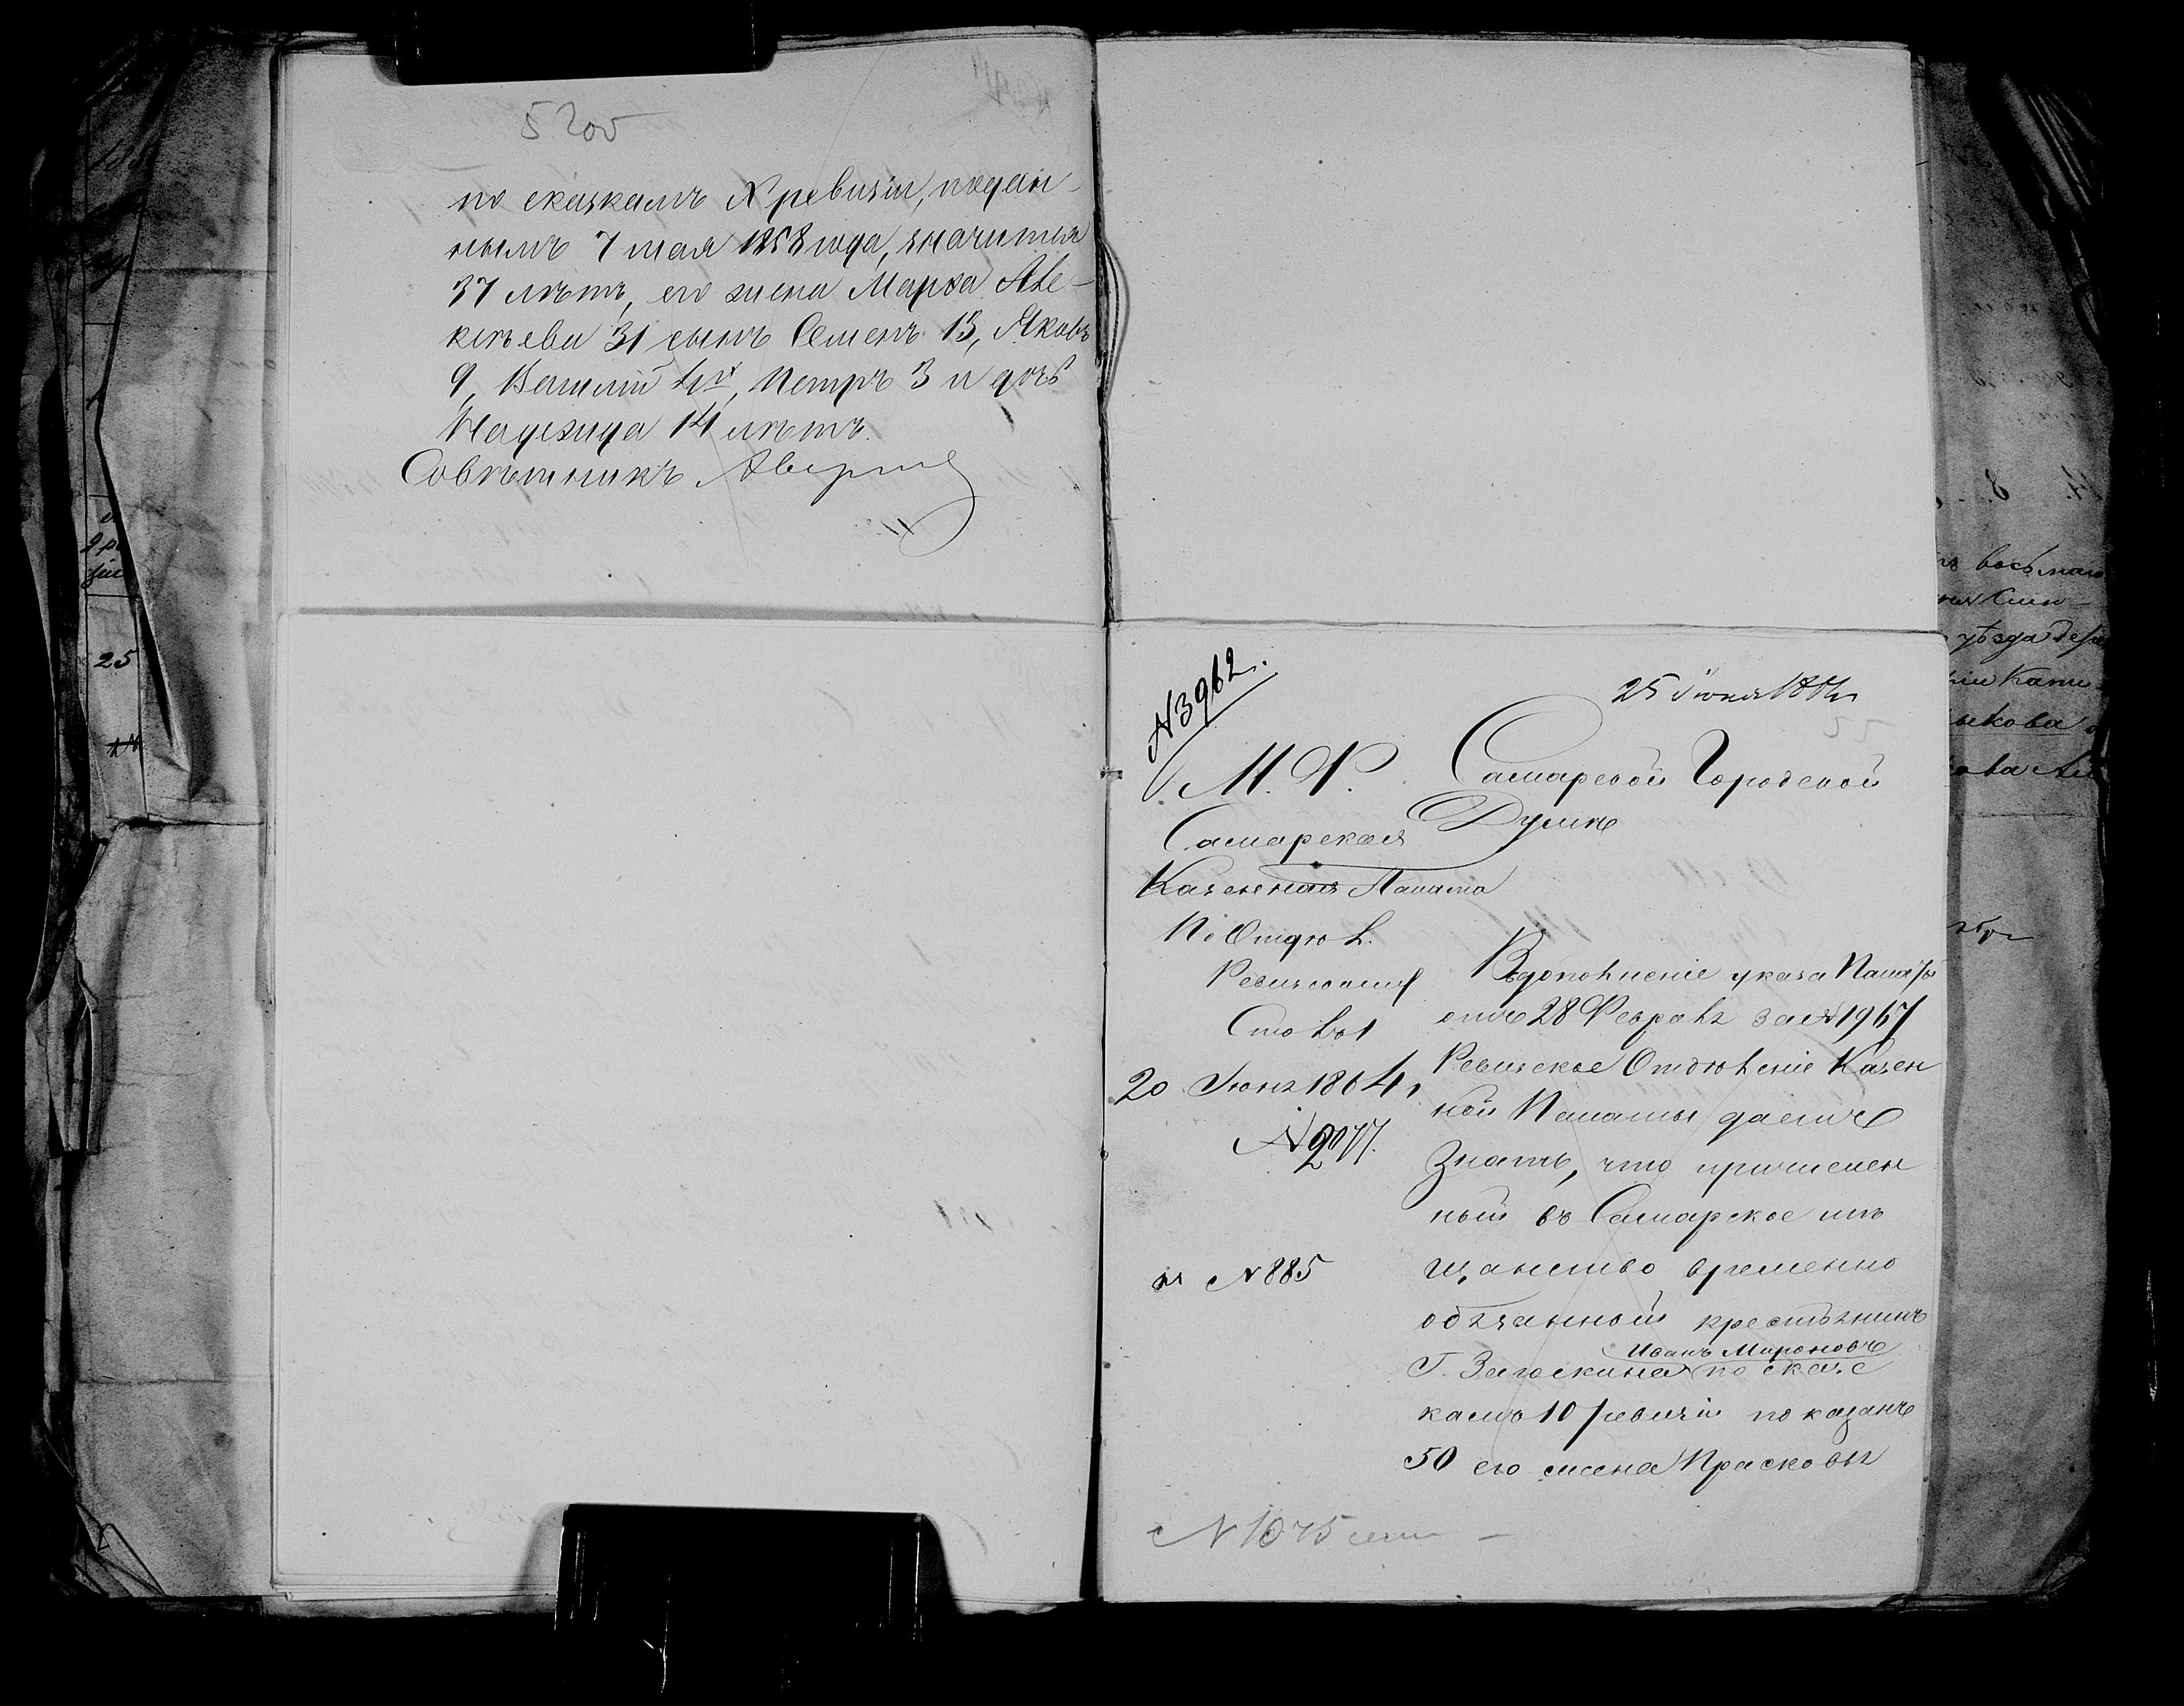 52об
по сказкамъ X ревизіи, подан-
нымъ 7 мая 1858 года, значится
37 лѣтъ, его жена Марѳа Але-
ксѣева 31 сынъ Семенъ 13, Яковъ
9, Василій Петръ 3 и дочь
Надежда 14 лѣтъ.
Совѣтникъ
N 3962.
25 Іюня 1864
М. Ф.
Самарская
Казенная Палата
По Отдѣл.
Ревизском
Столъ 1
20 Іюня 1864
N 2077.
N 885
Самарской Городской
Думѣ
Въ дополненіе указа Палаты
отъ 28 Февраля за N 1967
Ревизское Отдѣленіе Казен
ной Палаты даетъ
знать, что причислен
ный въ Самарское мѣ
щанство временно
обязанной крестьянинъ
Иванъ Мироновъ
Г. Загоскина по сказ
камъ 10 ревизіи показанъ
50 его жена Прасковья
N 1075